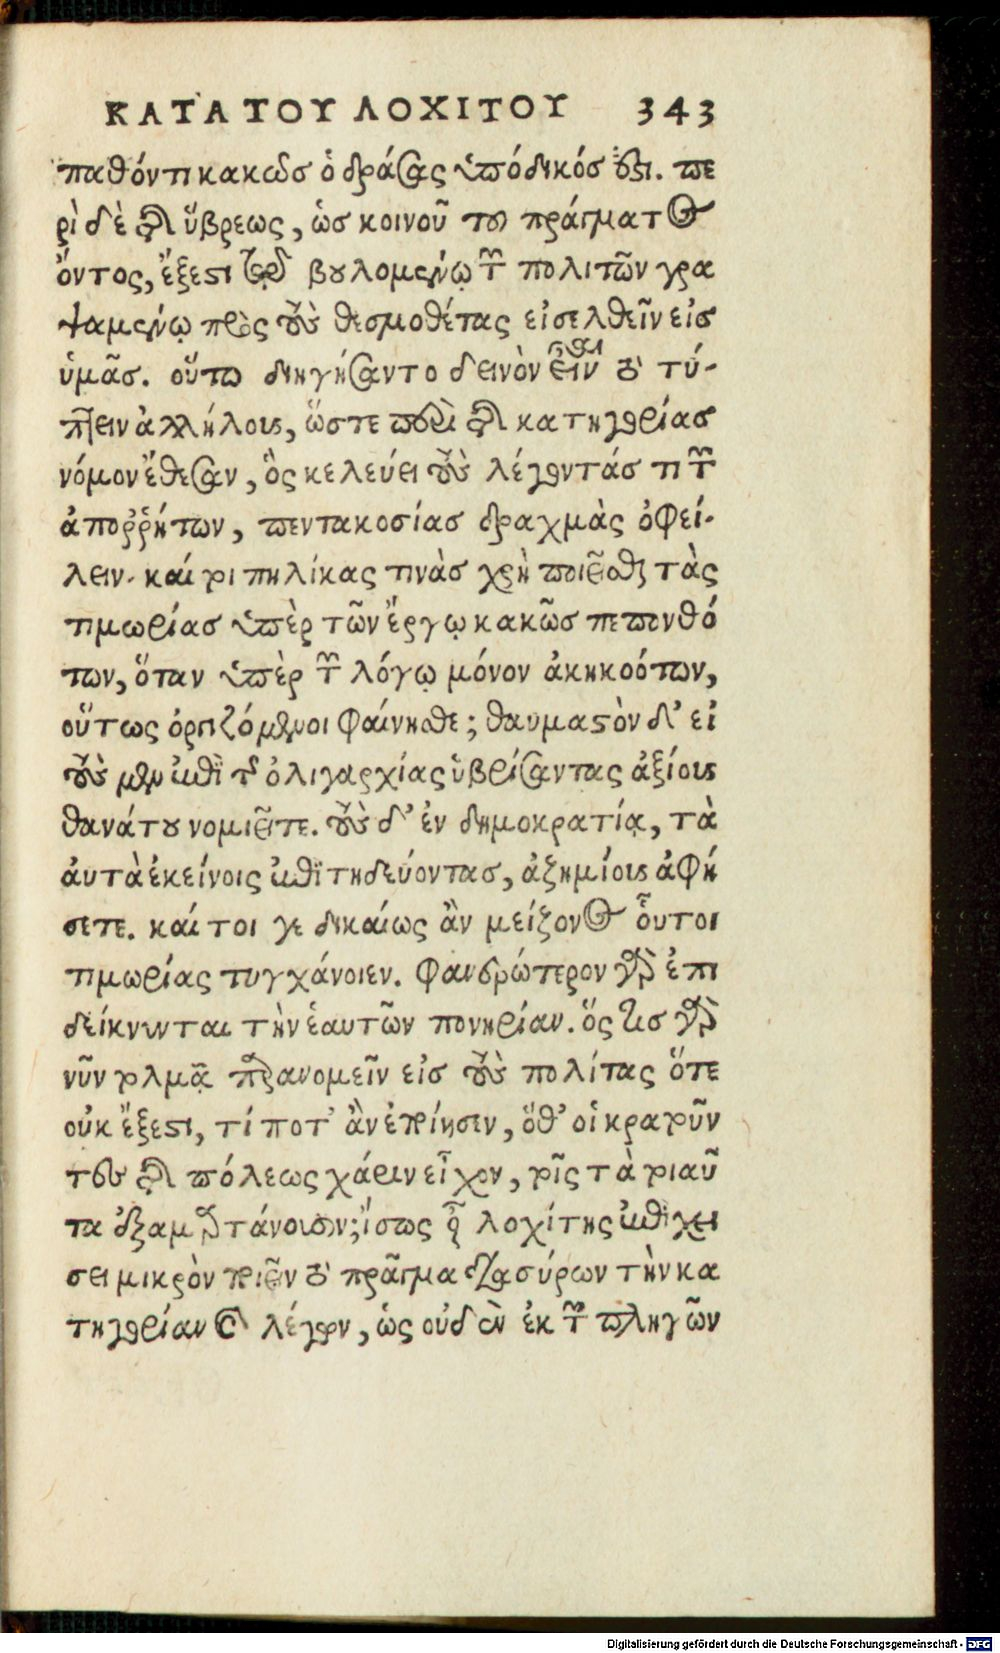 ΚΑΤᾺ ΤΟΥ ΛΟΧΙΤΟΥ 343
παθόντι κακῶσ ὁ δράσας ὑπόδικός ἐστι. πε
ρὶ δὲ τῆς ὕβρεως, ὡσ κοινοῦ τοῦ πράγματος
ὄντος, ἔξεστι τῷ βουλομένῳ τῶν πολιτῶν γρα
ψαμένῳ πρὸς τοὺς θεσμοθέτας εἰσελθεῖν εἰσ
ὑμᾶσ. οὕτω διηγήσαντο δεινὸν εἶναι τὸ τύ-
πτειν ἀλλήλους, ὥστε περὶ τῆς κατηγορίασ
νόμον ἔθεσαν, ὃς κελεύει τοὺς λέγοντάσ τι τῶν
ἀποῤῥήτων, πεντακοσίασ δραχμὰς ὀφεί-
λειν. καί τοι πηλίκας τινὰσ χρὴ ποιεῖσθαι τὰς
τιμωρίασ ὑπὲρ τῶν ἔργῳ κακῶσ πεπονθό
των, ὅταν ὑπὲρ τῶν λόγῳ μόνον ἀκηκοότων,
οὕτως ὀργιζόμενοι φαίνησθε; θαυμαστὸν δ’ εἰ
τοὺς μὲν ἐπὶ τῆς ὀλιγαρχίας ὑβρίσαντας ἀξίους
θανάτου νομιεῖτε. τοὺς δ’ ἐν δημοκρατίᾳ, τὰ
ἀυτὰ ἐκείνοις ἐπιτηδεύοντασ, ἀζημίους ἀφή
σετε. καί τοι γε δικαίως ἂν μείζονος οὗτοι
τιμωρίας τυγχάνοιεν. φανερώτερον γὰρ ἐπι
δείκνυνται τὴν ἑαυτῶν πονηρίαν. ὅς τισ γὰρ
νῦν τολμᾷ παρανομεῖν εἰσ τοὺς πολίτας ὅτε
οὐκ ἔξεστι, τί ποτ’ ἂν ἐποίησεν, ὅθ’ οἱ κρατοῦν
τες τῆς πόλεως χάριν εἶχον, τοῖς τὰ τοιαῦ
τα ἐξαμαρτάνουσιν; ἴσως οὖν λοχίτης ἐπιχει
ρήσει μικρὸν ποιεῖν τὸ πρᾶγμα διασύρων τὴν κα
τηγορίαν καὶ λέγων, ὡς οὐδὲν ἐκ τῶν πληγῶν
Digitalisierung gefördert durch die Deutsche Forschungsgemeinschaft - DFG